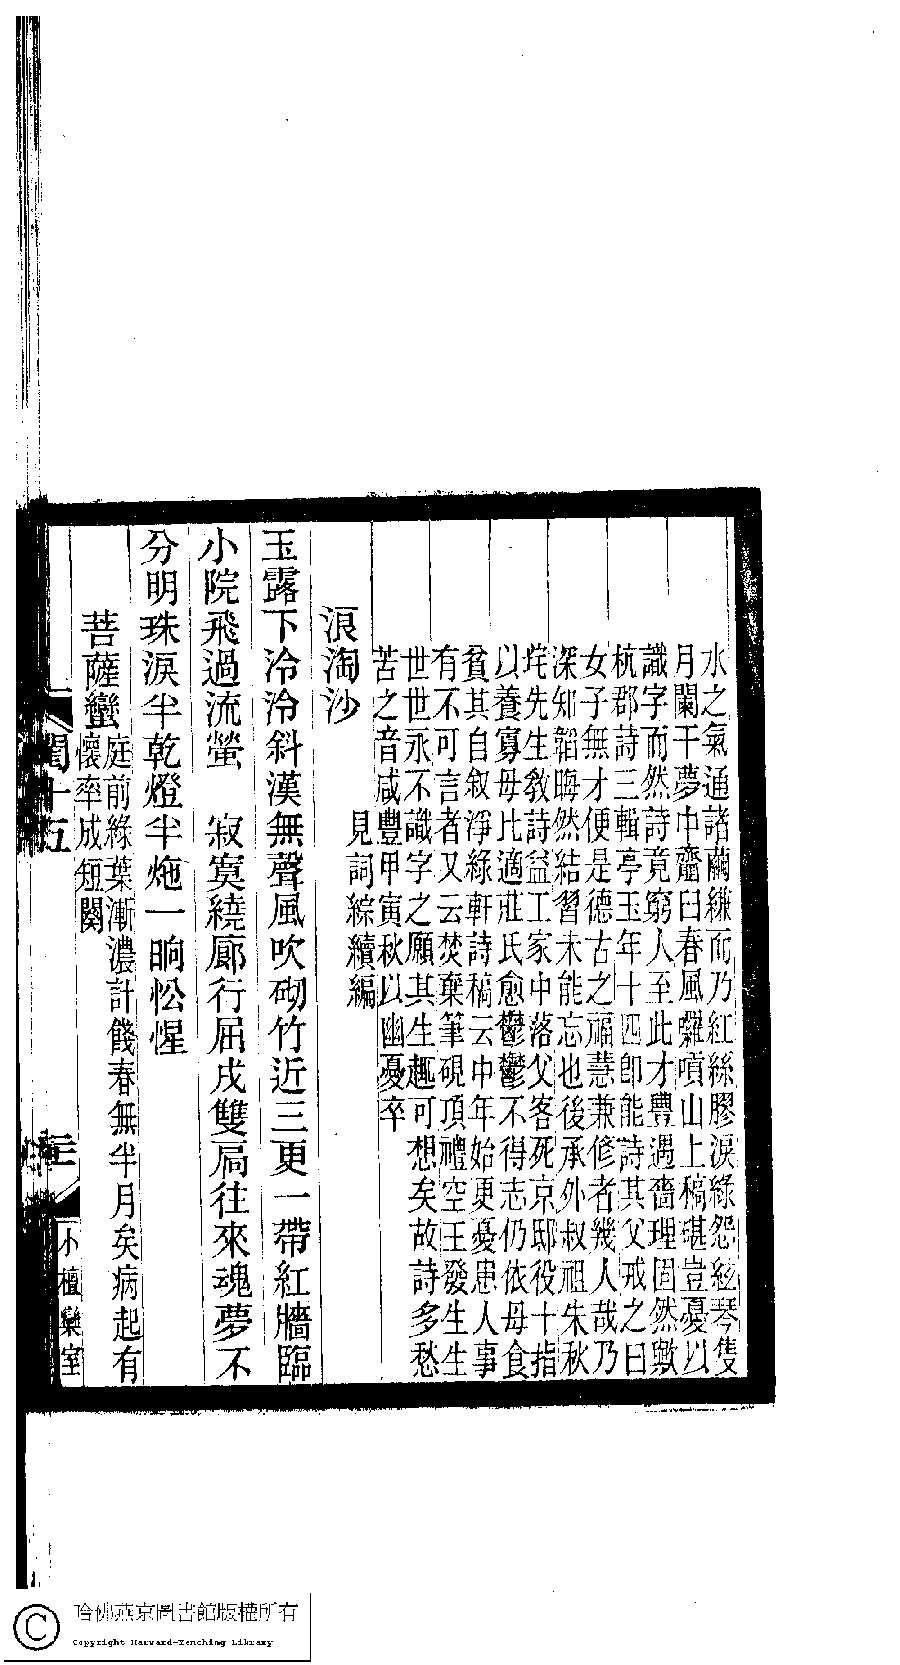 水之氣通諸繭纏而乃紅絲膠淚綠怨絃琴隻
月闌干夢中齾曰春風囉嗊山上稿碪豈憂以
識字而然詩竟窮人至此才豐遇嗇理固然歟
杭郡詩三輯亭玉年十四卽能詩其父戒之曰
女子無才便是德古之福慧兼修者幾人哉乃
深知韜晦然結習未能忘也後承外叔祖朱秋
垞先生教詩益工家中落父客死京邸役十指
以養寡母比適莊氏愈鬱鬱不得志仍依母食
貧其自叙淨綠軒詩稿云中年始更憂患人事
有不可言者又云焚棄筆硯頂禮空王發生生
世世永不識字之願其生趣可想矣故詩多愁
苦之音咸豐甲寅秋以幽憂卒
見詞綜續編
浪淘沙
玉露下泠泠斜漢無聲風吹砌竹近三更一帶紅牆臨
小院飛過流螢　寂寞繞廊行屈戌雙扃往來魂夢不
分明珠淚半乾燈半炧一晌惺忪
菩薩蠻庭前綠葉漸濃計餞春無半月矣病起有
懷率成短闋
閨十五
三
小檀欒室
哈佛燕京圖書館版權所有
Copyright Harvard-Yenching Library